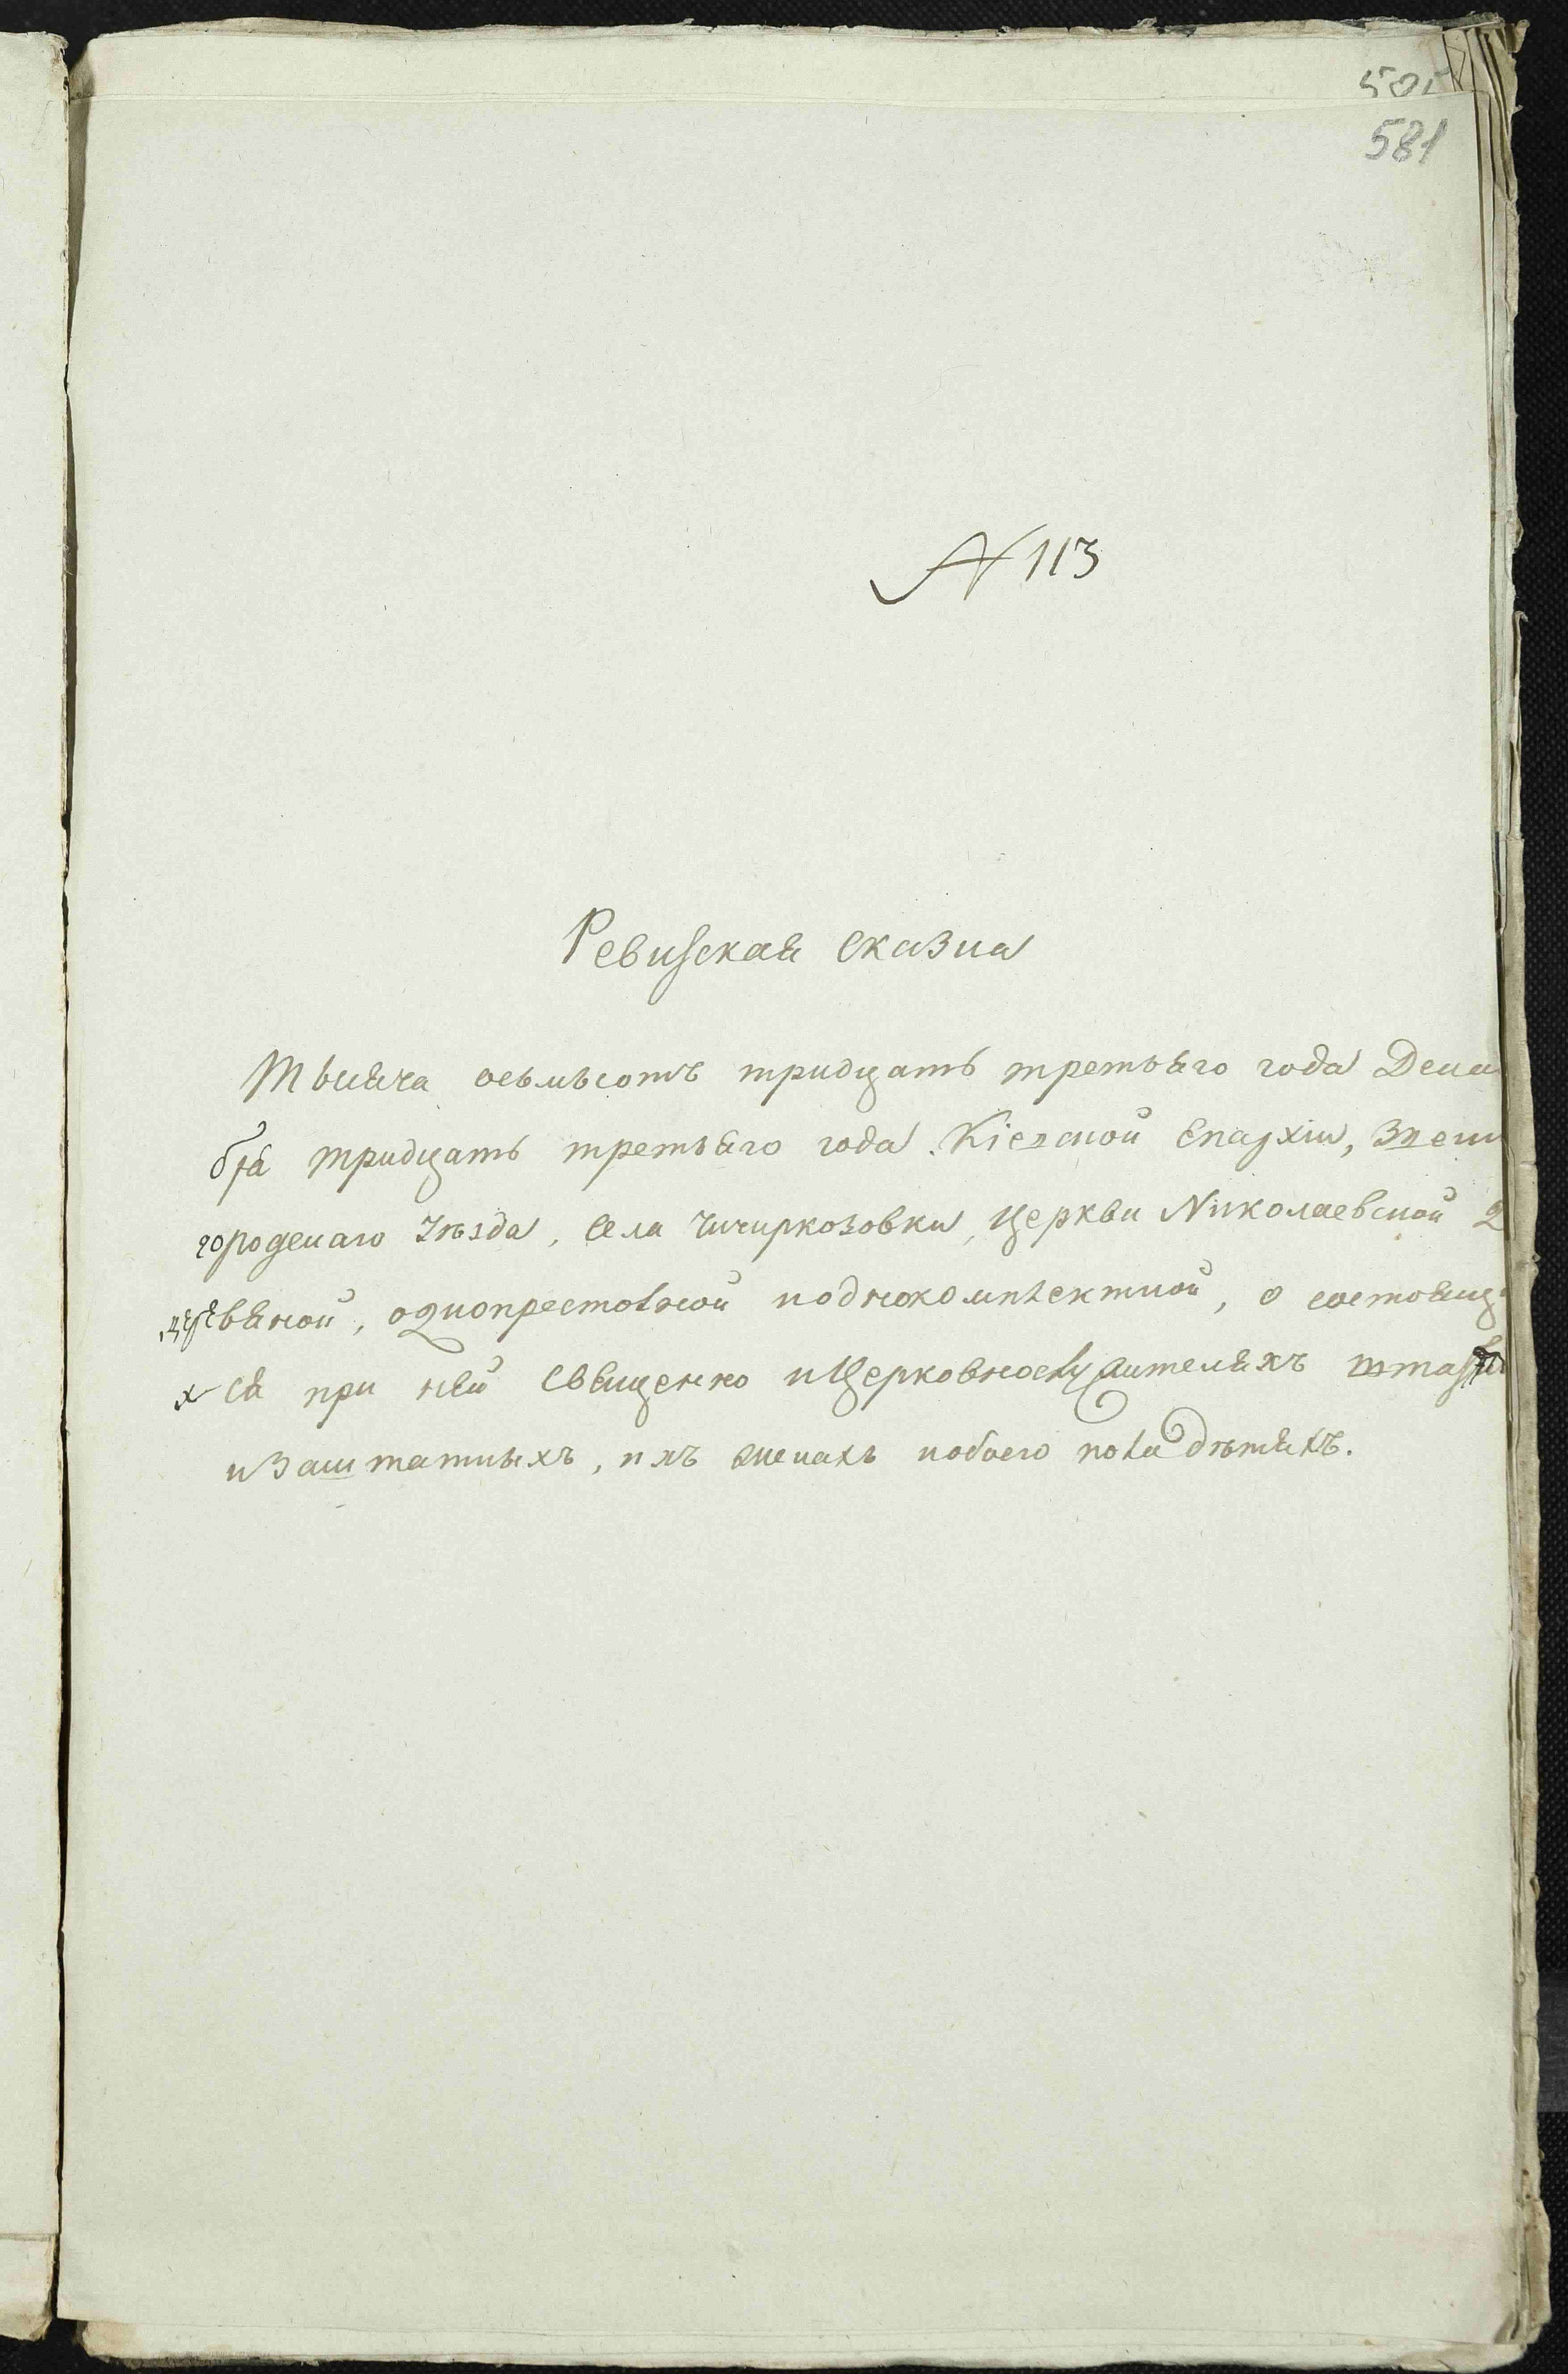 505
581
№ 113
Ревизская сказка
Тысяча осьмьсотъ тридцать третьяго года Дека
бря тридцать третьяго года. Кіевской Епархіи, Звени
городскаго Уѣзда, Села Чичиркозовки, Церкви Николаевской
деревяной, однопрестольной и однокомплектной, о состоящи
хся при ней Священно и Церковнослужителяхъ
и заштатныхъ, ихъ женахъ и обоего пола дѣтяхъ.